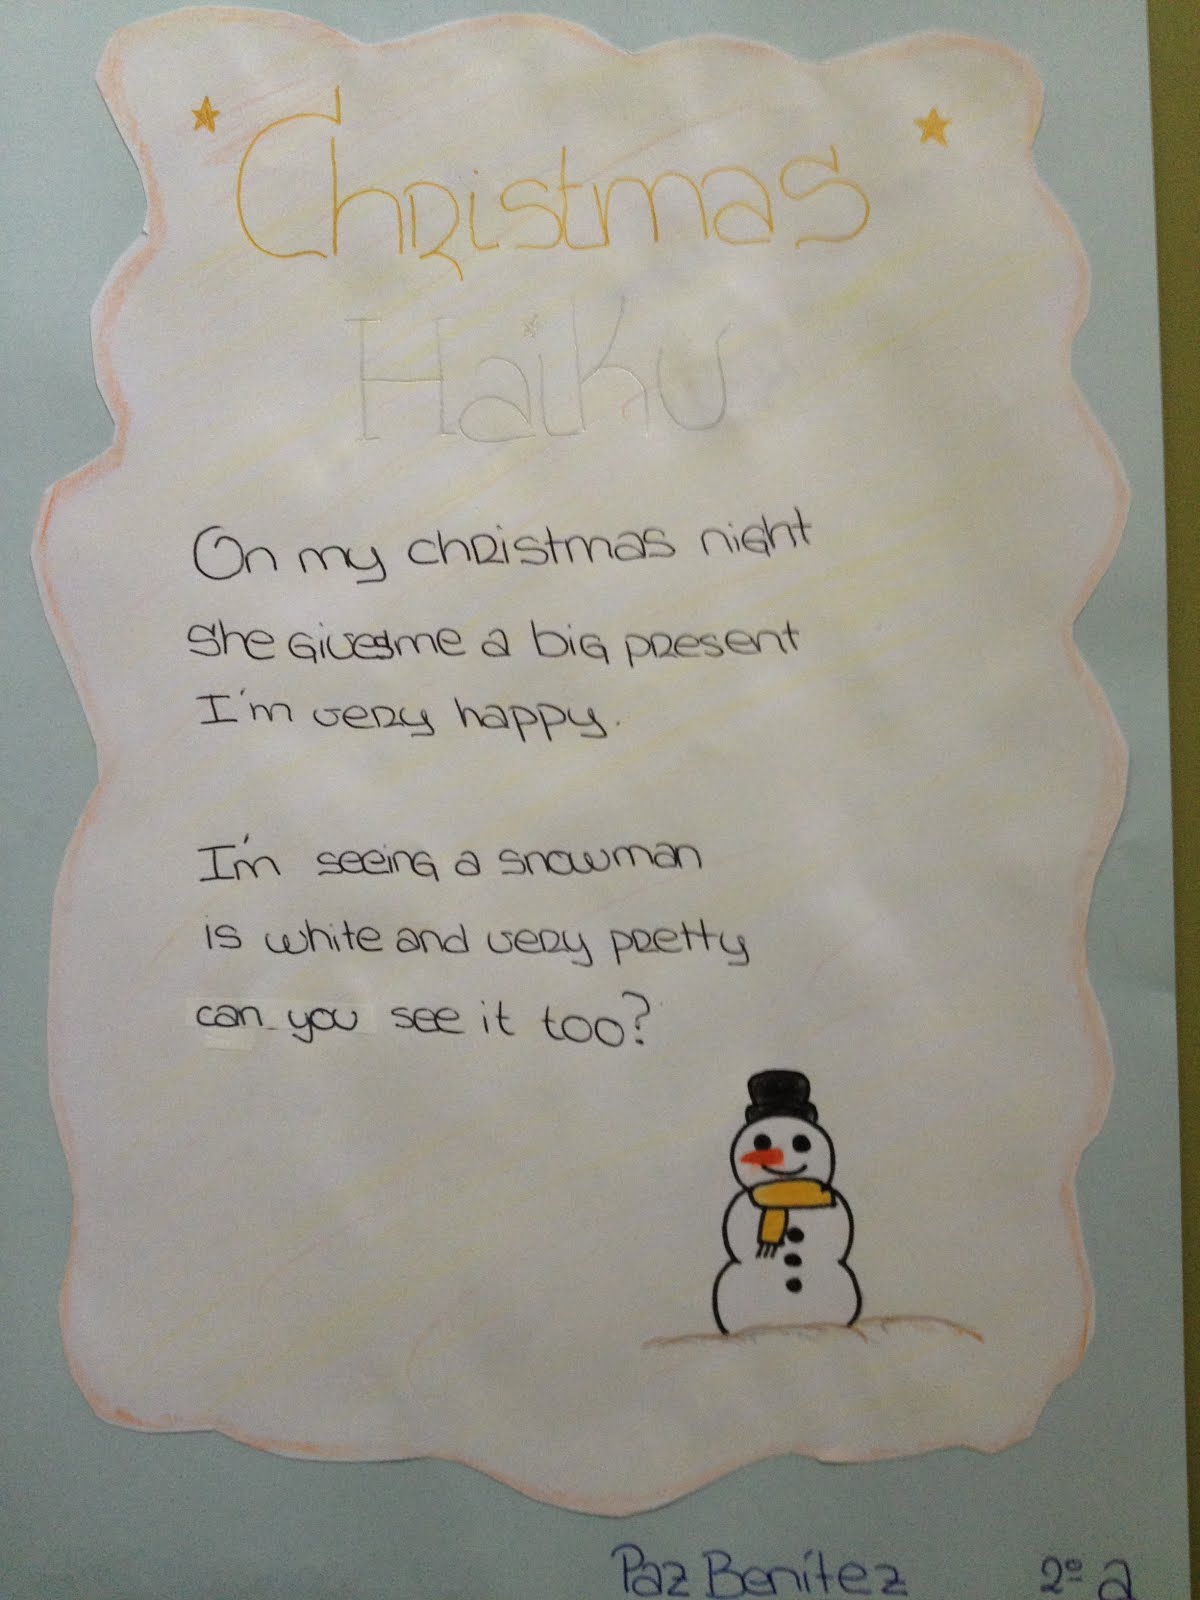 Christmas
Haiku
On my christmas night
She givesme a big present
I'm very happy.
I'm seeing a snowman
is white and very pretty
can you see it too?
Paz Benítez 2º a